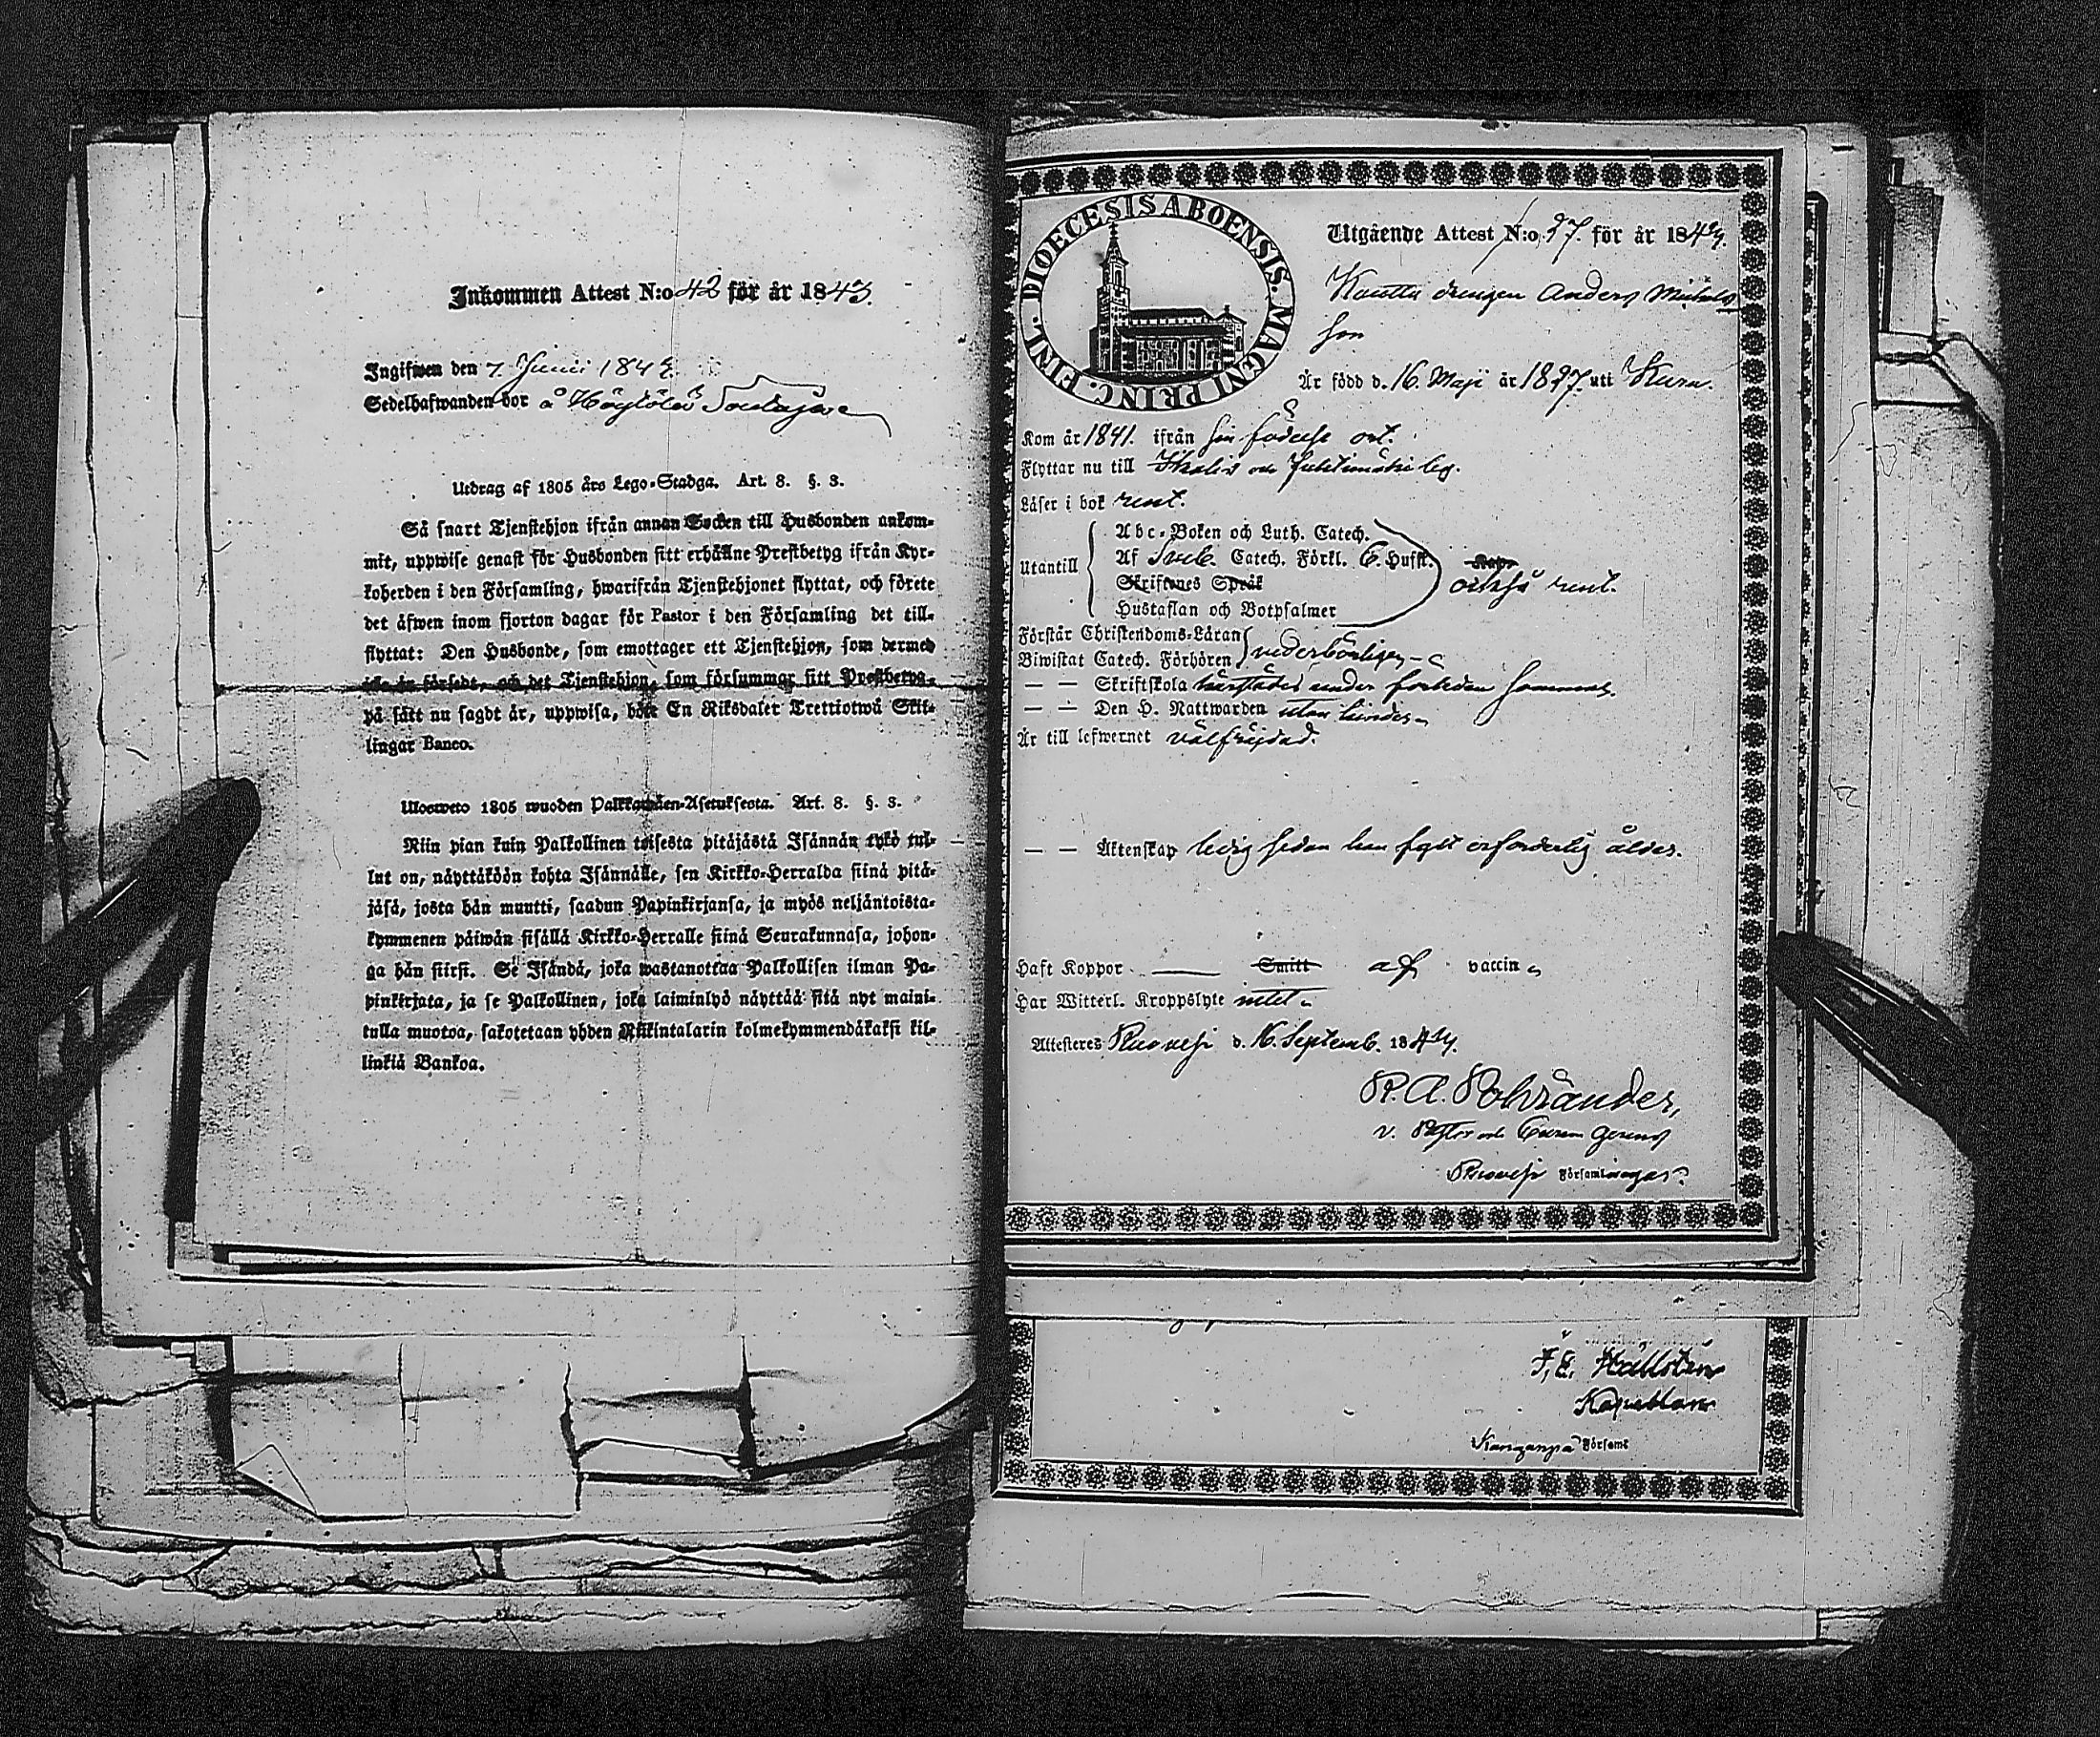 Inkommen Attest N:o 42 för år 1843.
Ingifwen den 7. Junii 1843.
Sedelhafwanden bor å
Utdrag af 1805 års Lego-Stadga. Art. 8. §. 3.
Så snart Tjenstehjon ifrån annan Socken till Husbonden ankom-
mit, uppwise genast för Husbonden sitt erhållne Prestbetyg ifrån Kyr-
koherden i den Församling, hwarifrån Tjenstehjonet flyttat, och förete
det äfwen inom fjorton dagar för Pastor i den Församling det till-
flyttat: Den Husbonde, som emottager ett Tjenstehjon, som dermed
icke är försedt, och det Tjenstehjon, som försummar sitt Prestbetyg,
på sätt nu sagdt är, uppwisa, böte En Riksdaler Trettiotwå Skil-
lingar Banco.
Ulosweto 1805 wuoden Palkkawäen-Asetuksesta. Art. 8. §. 3.
Niin pian kuin Palkollinen toisesta pitäjästä Isännän tykö tul-
lut on, näyttäköön kohta Isännälle, sen Kirkko-Herralda siinä pitä-
jäsä, josta hän muutti, saadun Papinkirjansa, ja myös neljäntoista-
kymmenen päiwän sisällä Kirkko-Herralle siinä Seurakunnasa, johon-
ga hän siirsi. Se Isändä, joka wastanottaa Palkollisen ilman Pa-
pinkirjata, ja se Palkollinen, joka laiminlyö näyttää sitä nyt maini-
tulla muotoa, sakotetaan yhden Riikintalarin kolmekymmendäkaksi kil-
linkiä Bankoa.
DIOECESIS ABOENSIS. MAGNI PRINC. FINL.
Utgående Attest N:o 37. för år 184
drengen Anders Michels
son
Är född d. 16. Maji år 1827. uti Kuru.
Kom år 1841. ifrån sin födelse ort.
Flyttar nu till Ikalis och
Läser i bok rent.
Utantill
Abc-Boken och Luth. Catech.
Af Sveb. Catech. Förkl. 6. Hufst.
Skriftenes Språk
Hustaflan och Botpsalmer
också rent.
Förstår Christendoms-Läran
Biwistat Catech. Förhören
nederbörligen
— — Skriftskola härstädes under förleden sommar.
— — Den H. Nattwarden utan hinder
Är till lefwernet välfrejdad.
— — Äktenskap ledig sedan han fyllt erforderlig ålder.
Haft Koppor — Smitt af vaccin
Har Witterl. Kroppslyte intet
Attesteres Ruovesi d. 16. Septemb. 184
R. A. Polviander,
v. Pastor och Curam Gerens
Ruovesi Församlingar
F, E. Hällström
Kapellan
Kangasniemi Församl